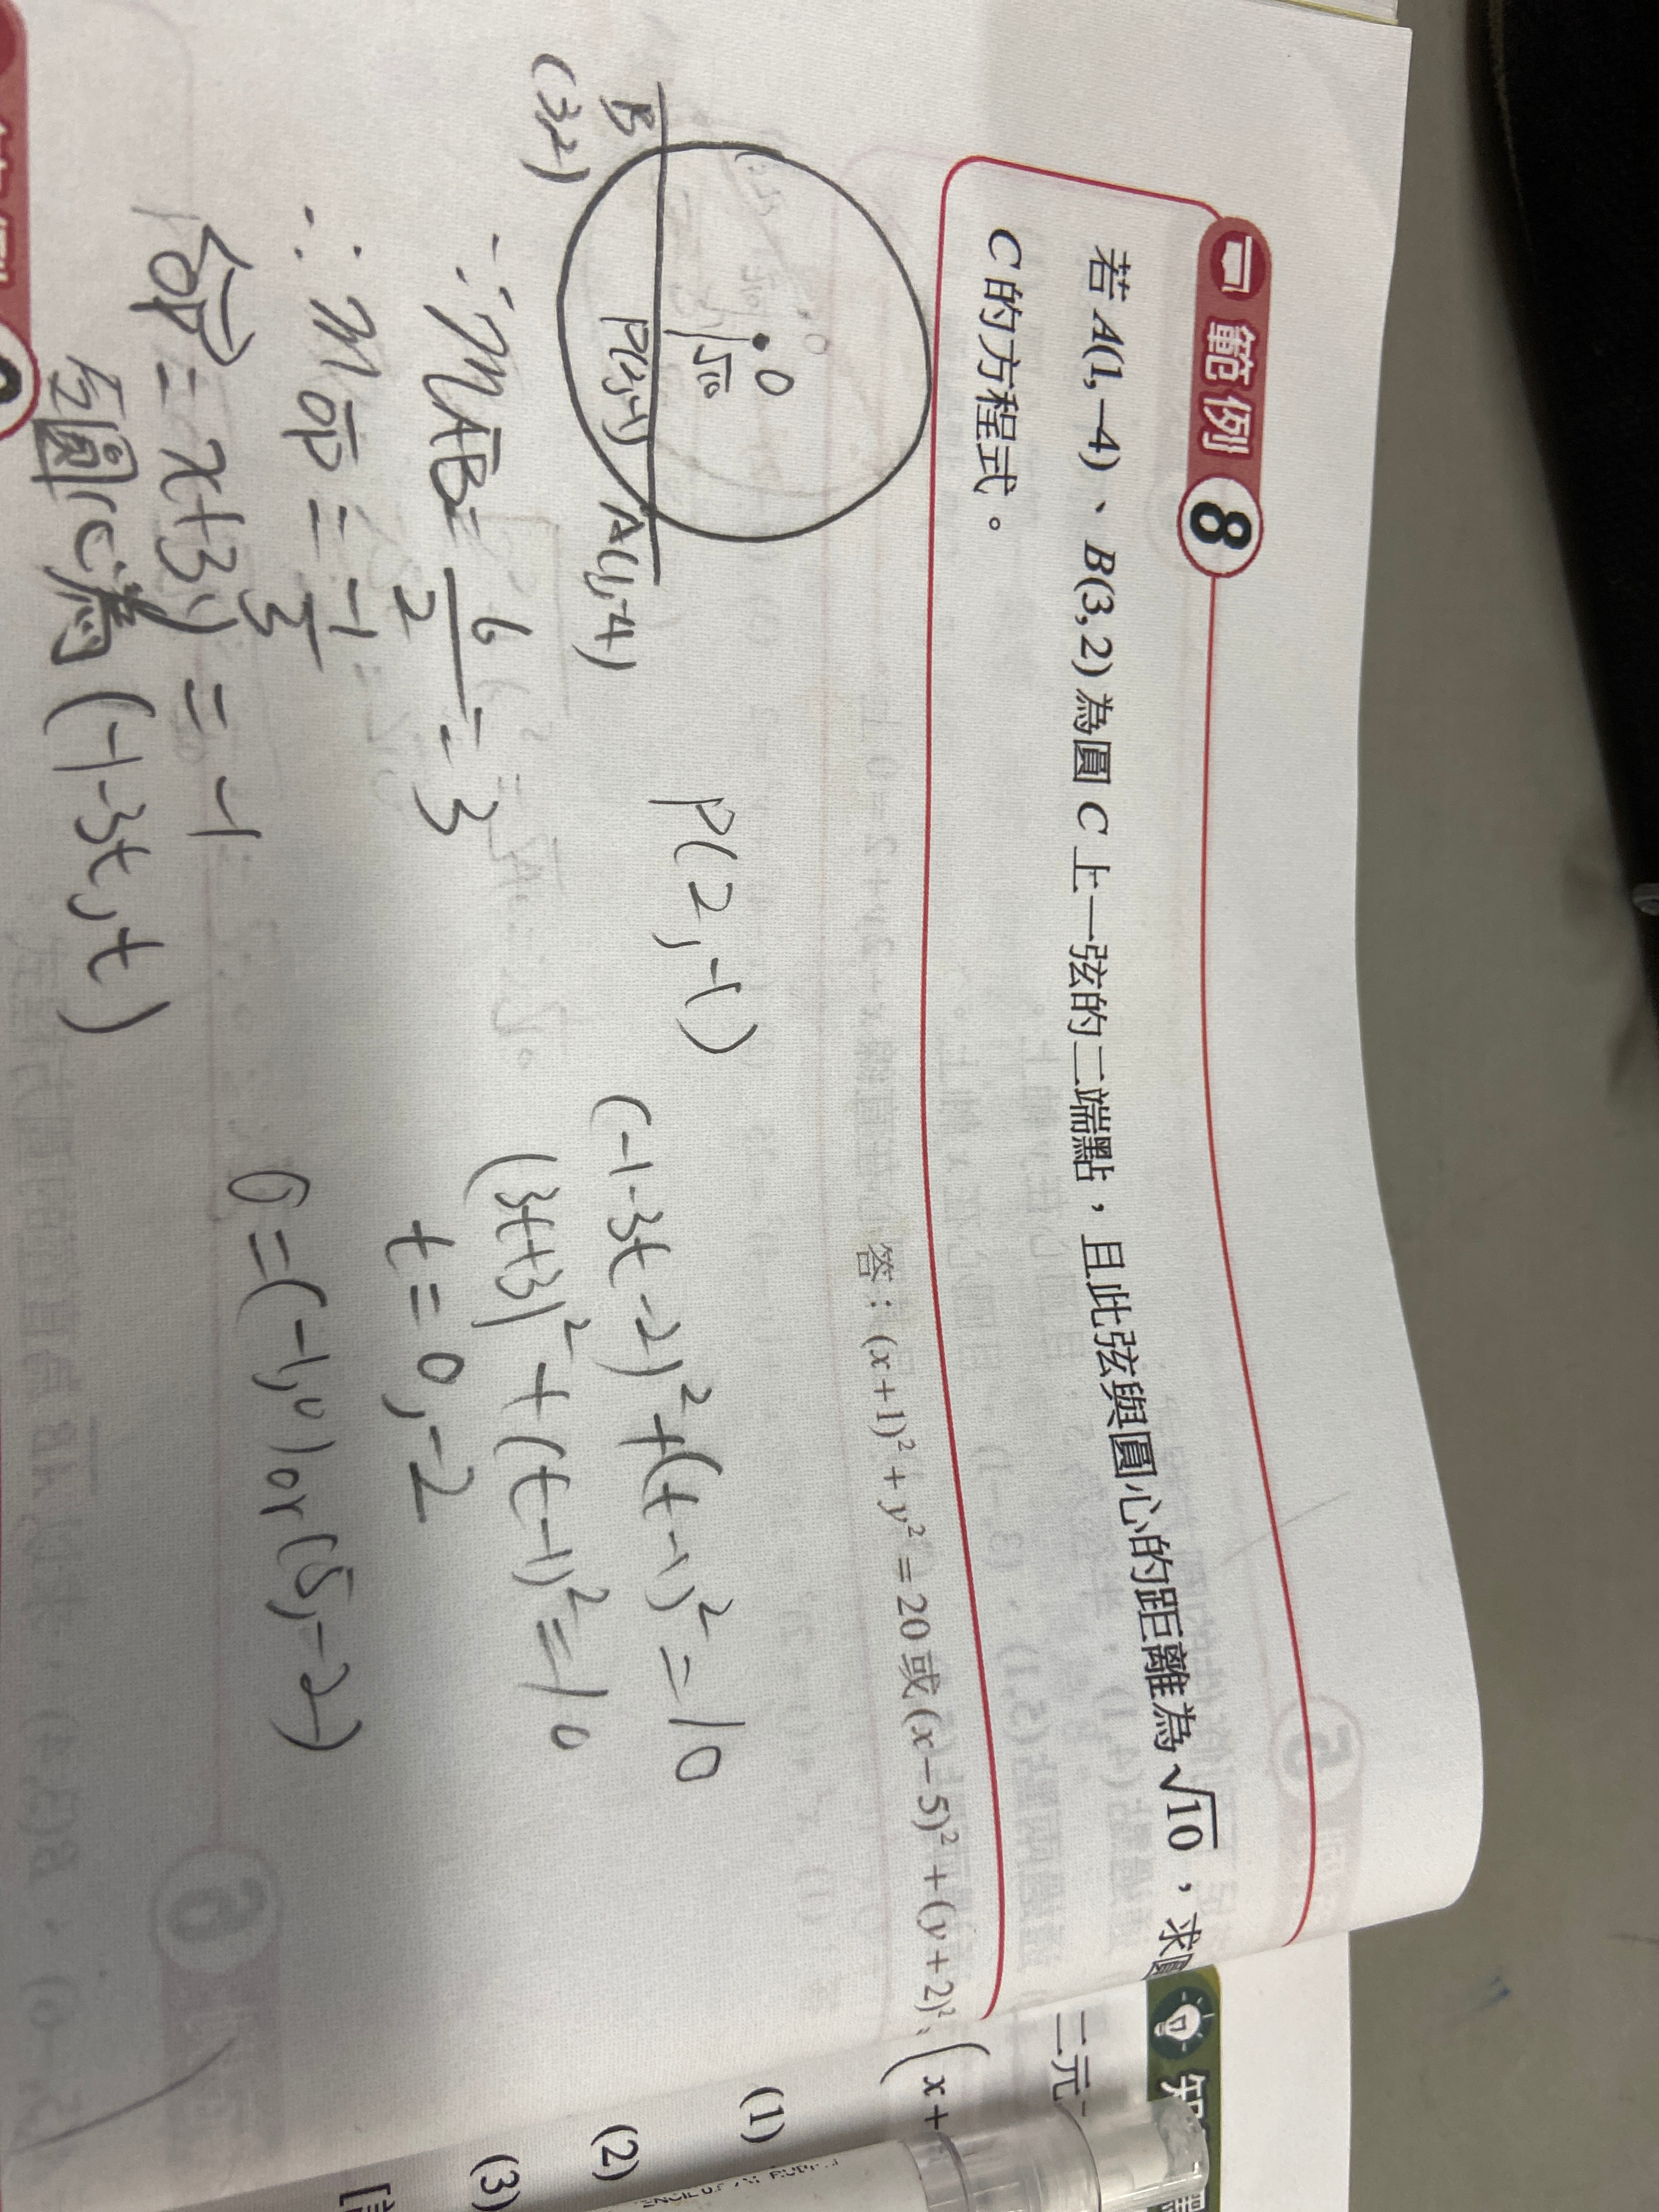 範例 8
若 A(1,−4)、B(3,2) 為圓 C 上一弦的二端點,且此弦與圓心的距離為 √10 ,求圓
C 的方程式。
答:(x+1)² + y² = 20 或 (x−5)² + (y+2)²
O
√10
B
(3,2)
P(2,-1)
A(1,-4)
P(2,-1)
∵ m AB = 6/2 = 3
∴ m OP = -1/3
OP = x+3y = -1
令圓C為 (-1-3t, t)
(-1-3t-2)² + (t-1)² = 10
(3t+3)² + (t-1)² = 10
t = 0, -2
O = (-1,0) or (5,-2)
知
二元
(x+
(1)
(2)
(3)